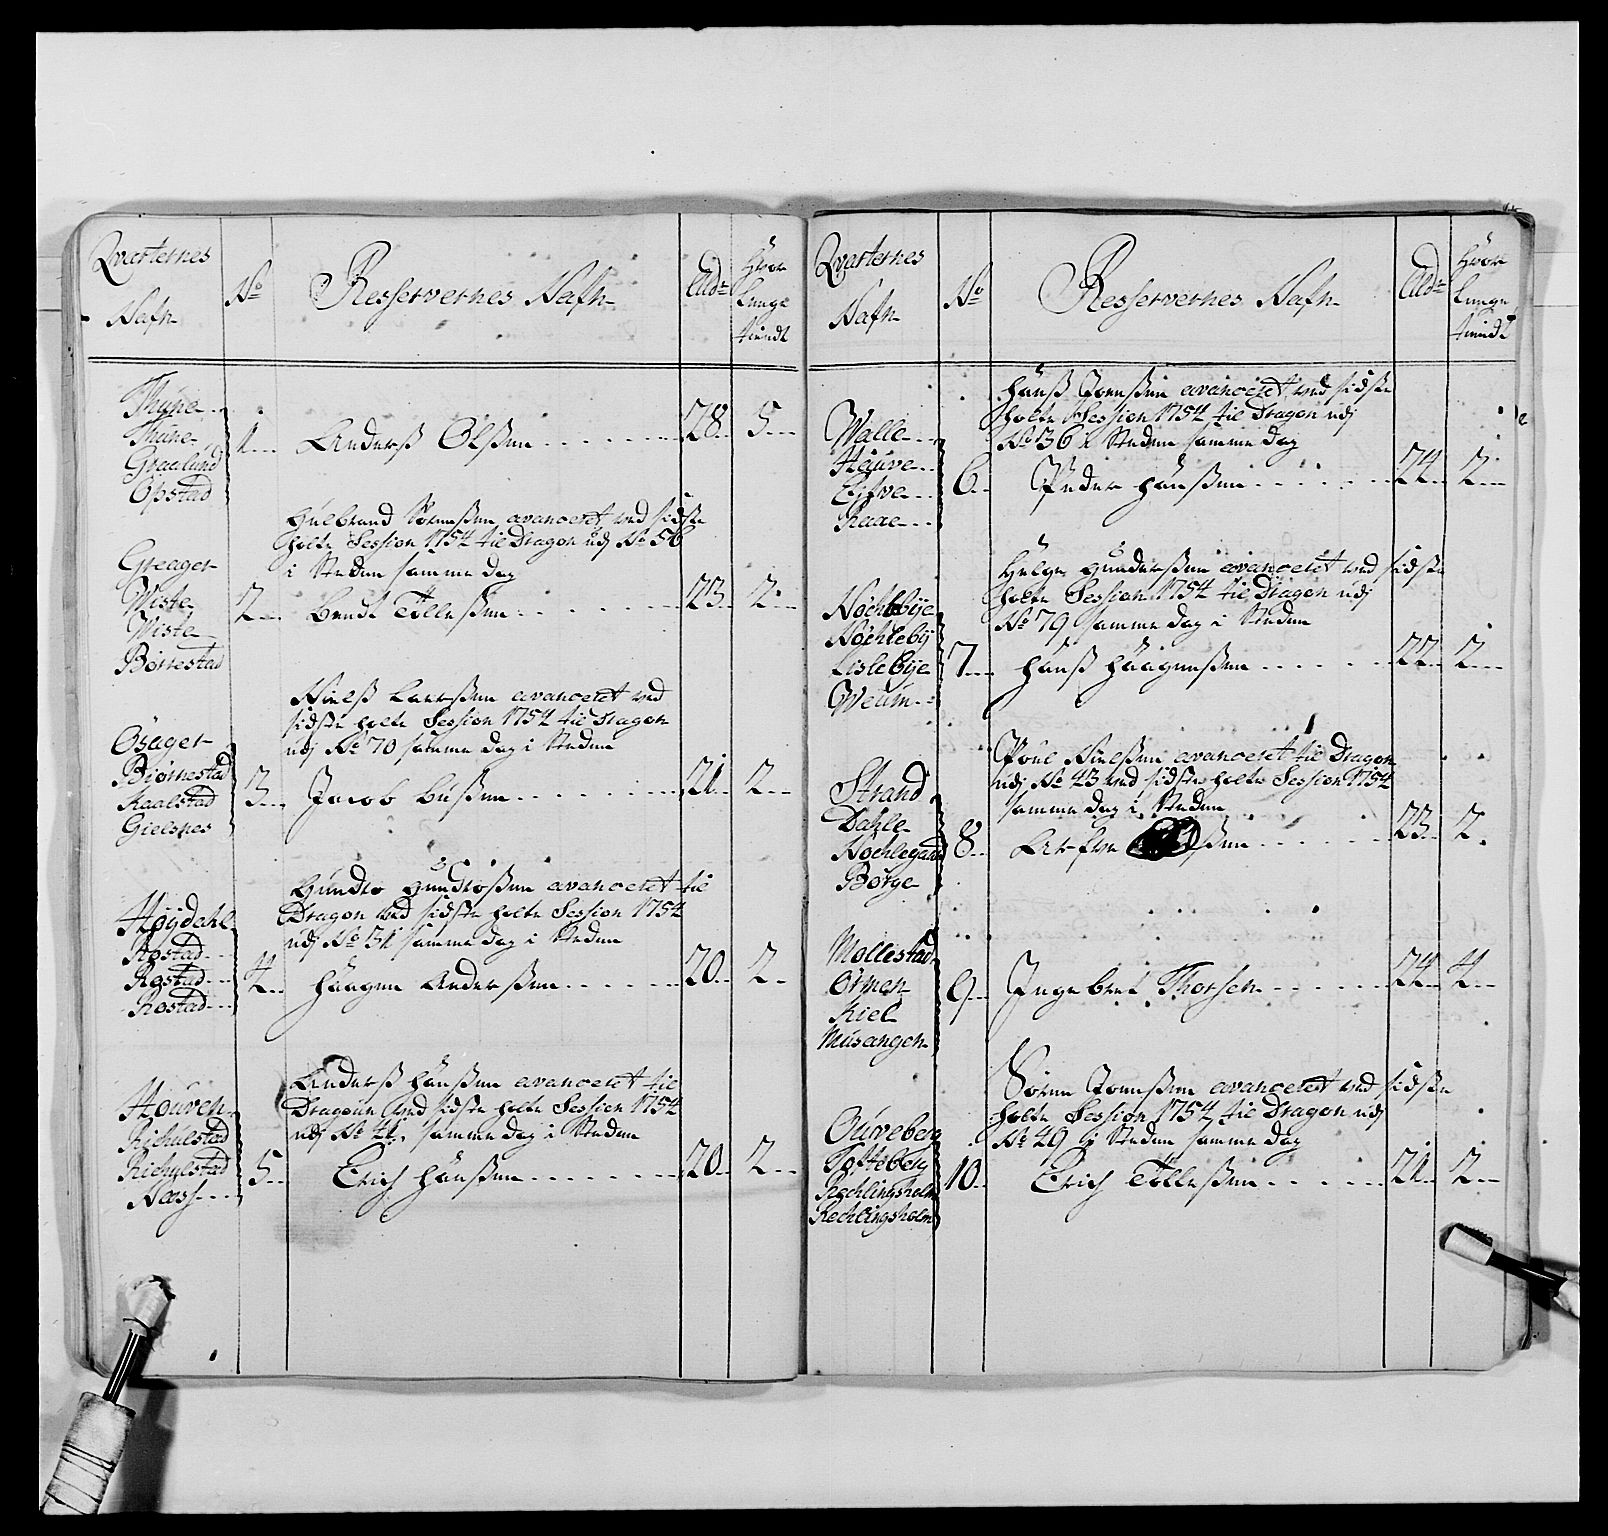 Qvarternes Nafn
No
Resserverness Nafn
Ald:
Hvor Lenge tiendt
Thune
Thune
Graalund
Opstad
1 Anderss Olssen 28 5
Helbrand Sörenssen avanceret ved sidste
holte Session 1754 til Dragon udj No 56
i Steden samme dag
Greager
Wiste
Wiste
Börrestad
2 Bendt Tollessen 23 2
Nielss Larssen avanceret ved
sidste holte Session 1754 til Dragon
udj No 70 samme dag i Steden
Osager
Biörnestad
Kaalstad
Gielsnes
3 Jacob Bussen 21 2
Gundro Gundrossen avanceret til
Dragon ved sidste holte Session 1754
udj No 31 samme dag i Steden
Höydahl
Rostad
Rostad
Rostad
4 Haagen Anderssen 20 2
Anderss Hanssen avanceret til
Dragoun ved sidste holte Session 1754
udj No 41 samme dag i Steden
Houven
Richulstad
Richulstad
Nass
5 Erich Hanssen 20 2
Qvarternes Nafn
No
Resserverness Nafn
Ald:
Hvor Lenge tiendt
Hanss Joenssen avanceret ved sidste
holte Session 1754 til Dragon udj
No 36 i Steden samme dag
Walle
Hauve
Eifve
Raae
6 Peder Hanssen 24 2
Helge Gunderssen avanceret ved sidste
holte Session 1754 til Dragon udj
No 79 samme dag i Steden
Nöchlebye
Nöchleby
Lislebye
Weum
7 Hanss Haagenssen 22 2
Poul Nielssen avanceret til Dragon
udj No 43 ved sidste holte Session 1754
samme dag i Steden
Strand
Dahle
Nochlegaard
Börge
8 ssen 23 2
Mollestad
Ormen
Kiel
Musangen
9 Ingebret Thorsen 24 4
Sören Joenssen avanceret ved sidste
holte Session 1754 til Dragon udj
No 49 i Steden samme dag
Ouveberg
Tofteberg
Rechlingsholm
Rechlingsholm
10 Erich Tollessen 21 2